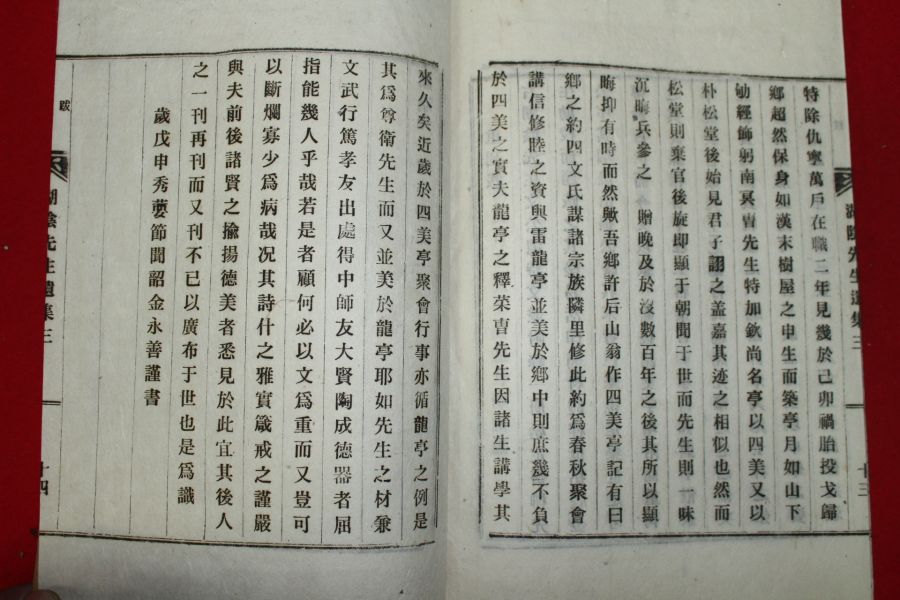 湖陰先生遺集三
十三
特除仇寧萬戶在職二年見幾於己卯禍胎投戈歸
鄉超然保身如漢末樹屋之申生而築亭月如山下
劬經飭躬南冥曺先生特加欽尚名亭以四美又以
朴松堂後始見君子詡之盖嘉其迹之相似也然而
松堂則棄官後旋即顯于朝聞于世而先生則一味
沉晦兵參之 贈晚及於沒數百年之後其所以顯
晦抑有時而然歟吾鄉許后山翁作四美亭記有曰
鄉之約四文氏謀諸宗族隣里修此約爲春秋聚會
講信修睦之資與雷龍亭並美於鄉中則庶幾不負
於四美之實夫龍亭之釋菜曺先生因諸生講學其
來久矣近歲於四美亭聚會行事亦循龍亭之例是
其爲尊衛先生而又並美於龍亭耶如先生之材兼
文武行篤孝友出處得中師友大賢陶成德器者屈
指能幾人乎哉若是者顧何必以文爲重而又豈可
以斷爛寡少爲病哉况其詩什之雅實箴戒之謹嚴
與夫前後諸賢之揄揚德美者悉見於此宜其後人
之一刊再刊而又刊不已以廣布于世也是爲識
歲戊申秀葽節聞韶金永善謹書
跋
湖陰先生遺集三
十四